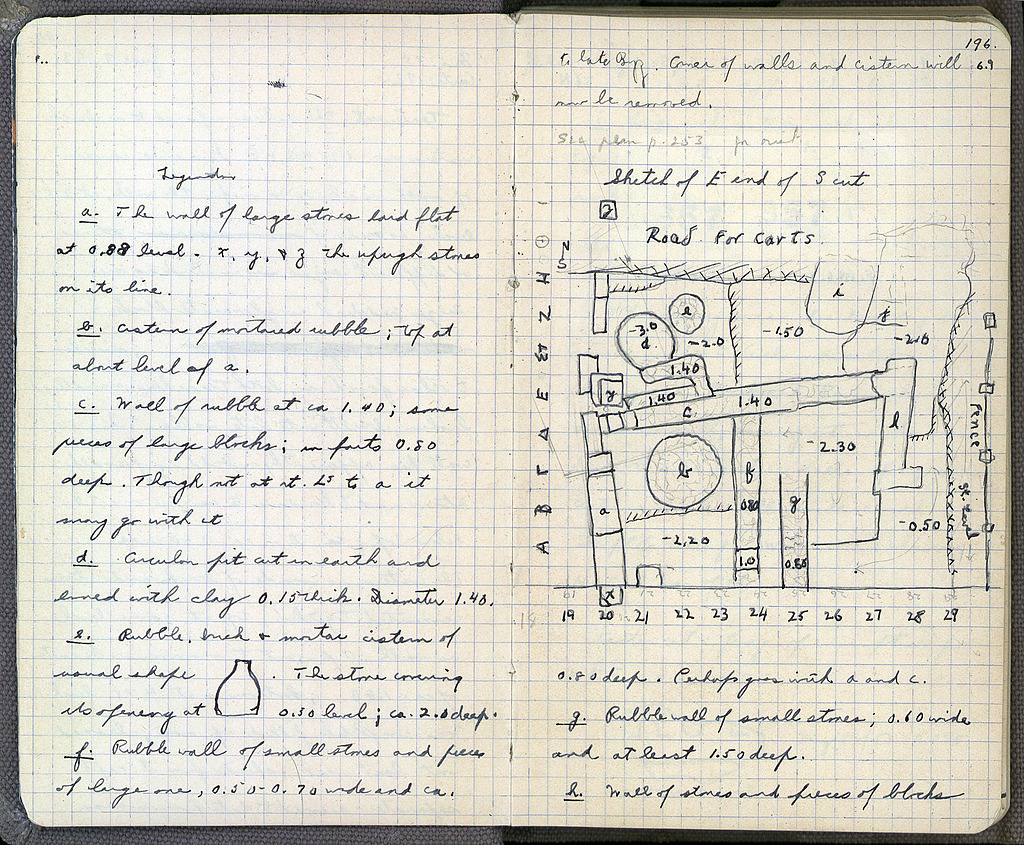 Legend
a. The wall of large stones laid flat
at 0.88 level. x, y, & z the upright stones
on its line.
b. Cistern of mortared rubble; top at
about level of a.
c. Wall of rubble at ca 1.40; some
pieces of large blocks; in parts 0.80
deep. Though not at rt. Ls to a it
may go with it
d. Circular pit cut in earth and
lined with clay 0.15 thick. Diameter 1.40.
e. Rubble, brick & mortar cistern of
usual shape . The stone covering
its opening at 0.50 level; ca. 2.0 deep.
f. Rubble wall of small stones and pieces
of large one, 0.50-0.70 wide and ca.
196.
to late Byz. Corner of walls and cistern will 6.9
now be removed.
See plan p. 253 for rest.
Sketch of E end of S cut
z
Road For Carts
N
S
Η
Ζ
Ε
Δ
Γ
Β
Α
i
e
-3.0
d.
-2.0
-1.50
k
-2.0
1.40
y
1.40
c
1.40
l
Fence
-2.30
b
f
a
0.80
g
St. Level
-0.50
-2.20
1.0
0.80
x
19 20 21 22 23 24 25 26 27 28 29
0.80 deep. Perhaps goes with a and c.
g. Rubble wall of small stones; 0.60 wide
and at least 1.50 deep.
h. Wall of stones and pieces of blocks